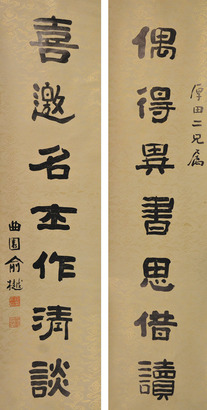 厚田二兄屬
偶得異書思借讀
喜邀名士作清談
曲園俞樾